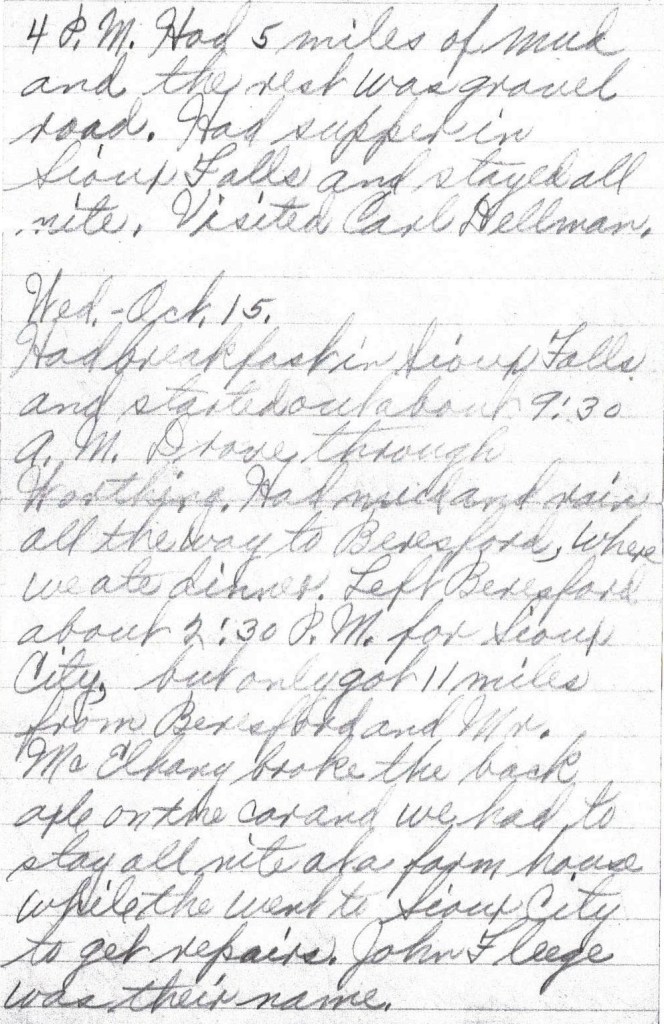 4 P.M. Had 5 miles of mud
and the rest was gravel
road. Had supper in
Sioux Falls and stayed all
nite. Visited Carl Hellman.
Wed. - Oct. 15.
Had breakfast in Sioux Falls
and started out about 9:30
A.M. Drove through
Worthing. Had mud and rain
all the way to Beresford, where
we ate dinner. Left Beresford
about 2:30 P.M. for Sioux
City, but only got 11 miles
from Beresford and Mr.
Mc Elhany broke the back
axle on the car and we had to
stay all nite at a farm house
while the went to Sioux City
to get repairs. John Fleege
was their name.